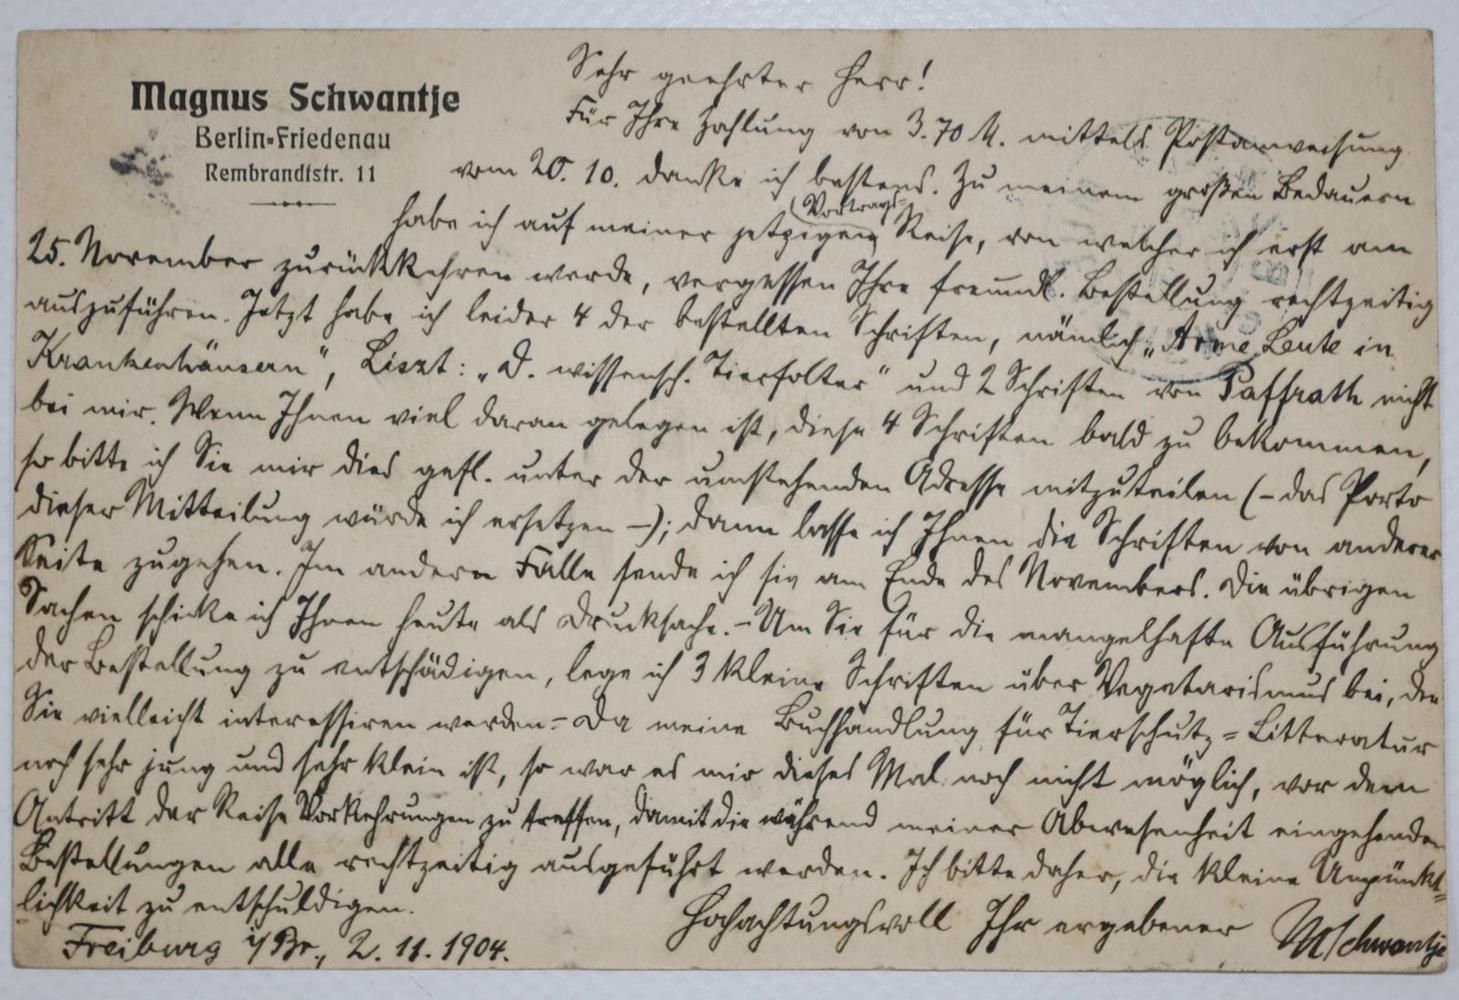 Magnus Schwantje
Berlin-Friedenau
Rembrandtstr. 11
Sehr geehrter Herr!
Für Ihre Zahlung von 3.70 M. mittels Postanweisung
vom 20. 10. danke ich bestens. Zu meinem großen Bedauern
habe ich auf meiner jetzigen (Vortrags-) Reise, von welcher ich erst am
25. November zurückkehren werde, vergessen Ihre freundl. Bestellung rechtzeitig
auszuführen. Jetzt habe ich leider 4 der bestellten Schriften, nämlich „Arme Leute in
Krankenhäusern", Liszt: „D. wissensch. Tierfolter" und 2 Schriften von Paffrath nicht
bei mir. Wenn Ihnen viel daran gelegen ist, diese 4 Schriften bald zu bekommen,
so bitte ich Sie mir dies gefl. unter der umstehenden Adresse mitzuteilen (– das Porto
dieser Mitteilung würde ich ersetzen –); dann lasse ich Ihnen die Schriften von anderer
Seite zugehen. Im andern Falle sende ich sie am Ende des Novembers. Die übrigen
Sachen schicke ich Ihnen heute als Drucksache. – Um Sie für die mangelhafte Ausführung
der Bestellung zu entschädigen, lege ich 3 kleine Schriften über Vegetarismus bei, die
Sie vielleicht interessiren werden. – Da meine Buchhandlung für Tierschutz=Litteratur
noch sehr jung und sehr klein ist, so war es mir dieses Mal noch nicht möglich, vor dem
Antritt der Reise Vorkehrungen zu treffen, damit die während meiner Abwesenheit eingehenden
Bestellungen alle rechtzeitig ausgeführt werden. Ich bitte daher, die kleine Unpünkt=
lichkeit zu entschuldigen.
Hochachtungsvoll Ihr ergebener MSchwantje
Freiburg i/Br., 2. 11. 1904.